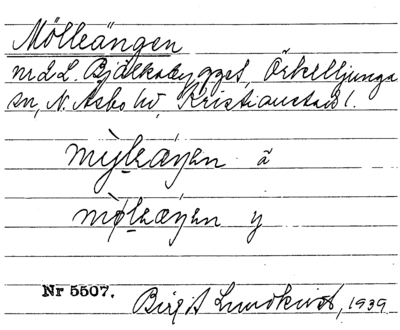 Mölleängen
md. L. Bjälkabygget, Örkelljunga
sn, N. Åsbo hd, Kristianstad l.
ä
y
Nr 5507.
Birgit Lundkvist, 1939